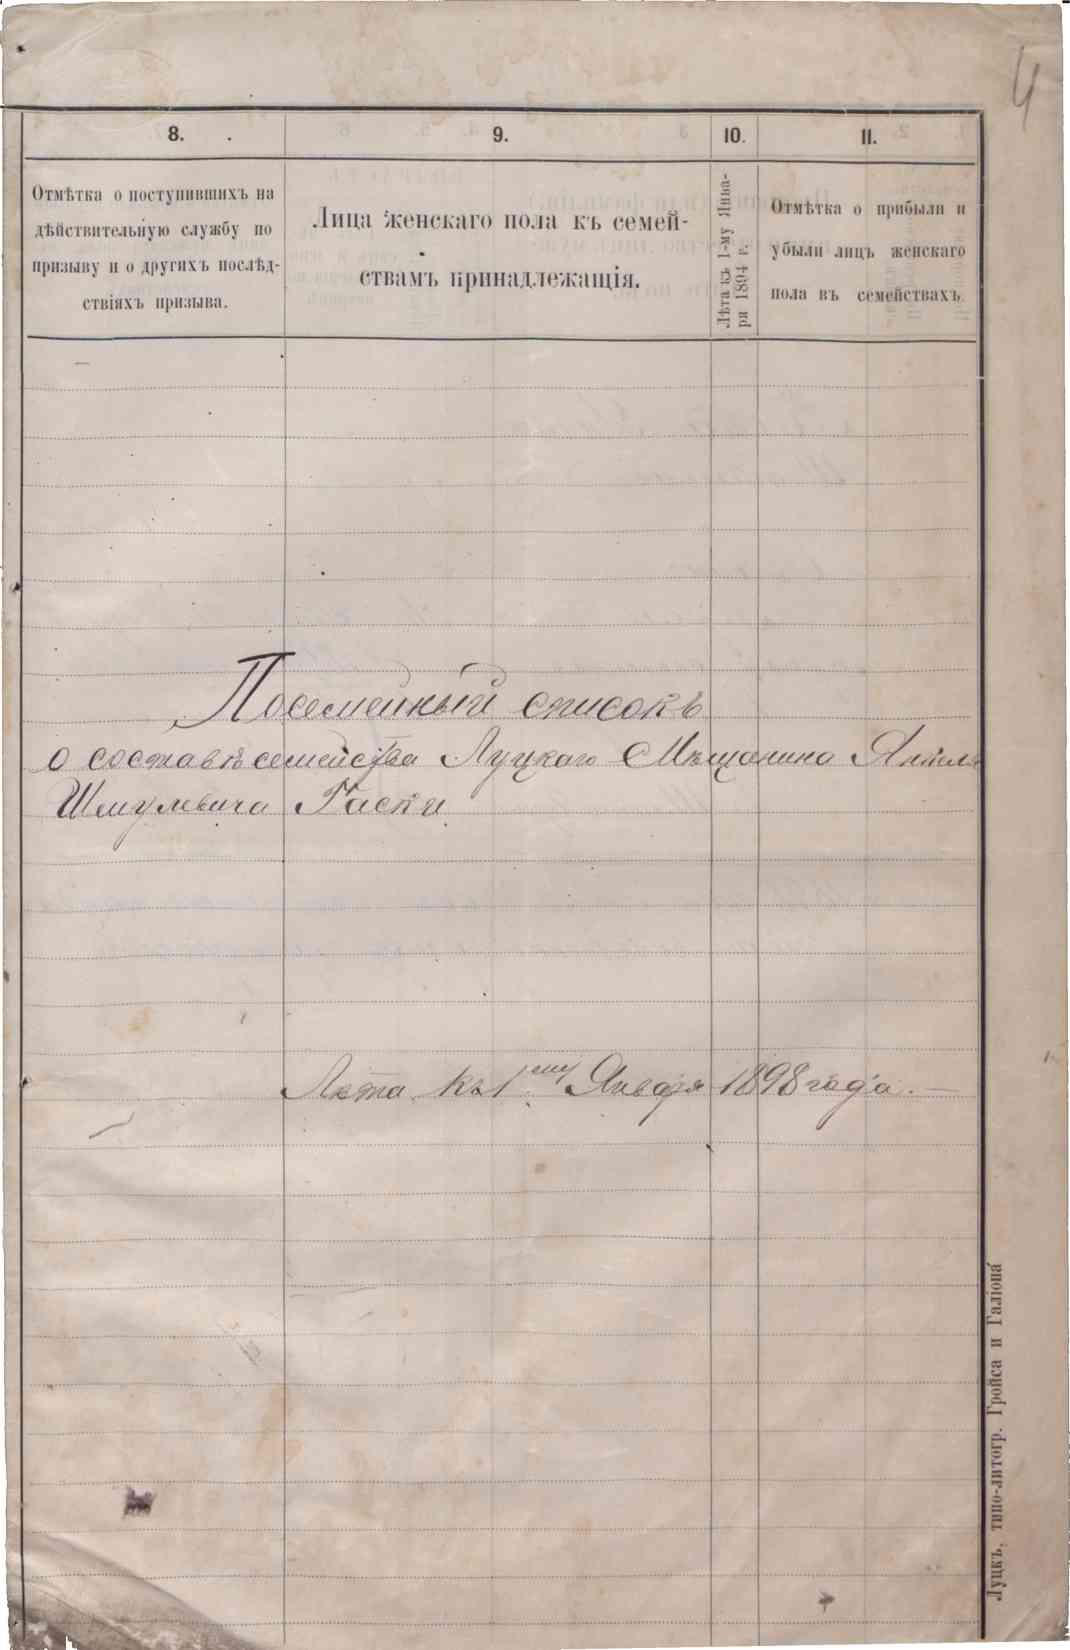 4
8. 9. 10. 11.
Отмѣтка о поступившихъ на
дѣйствительную службу по
призыву и о другихъ послѣд-
ствіяхъ призыва.
Лица женскаго пола къ семей-
ствамъ принадлежащія.
Лѣта къ 1-му Янва-
ря 1894 г.
Отмѣтка о прибыли и
убыли лицъ женскаго
пола въ семействахъ
Посемейный списокъ
о составѣ семейства Луцкаго Мѣщанина
Шмулевича Гаски
Лѣта къ 1му Января 1898 года.
Луцкъ, типо-литогр. Гройса и Галіона